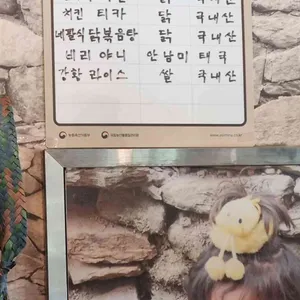 치킨 티카 닭 국내산
네팔식 닭볶음탕 닭 국내산
비리야니 안남미 태국
강황 라이스 쌀 국내산